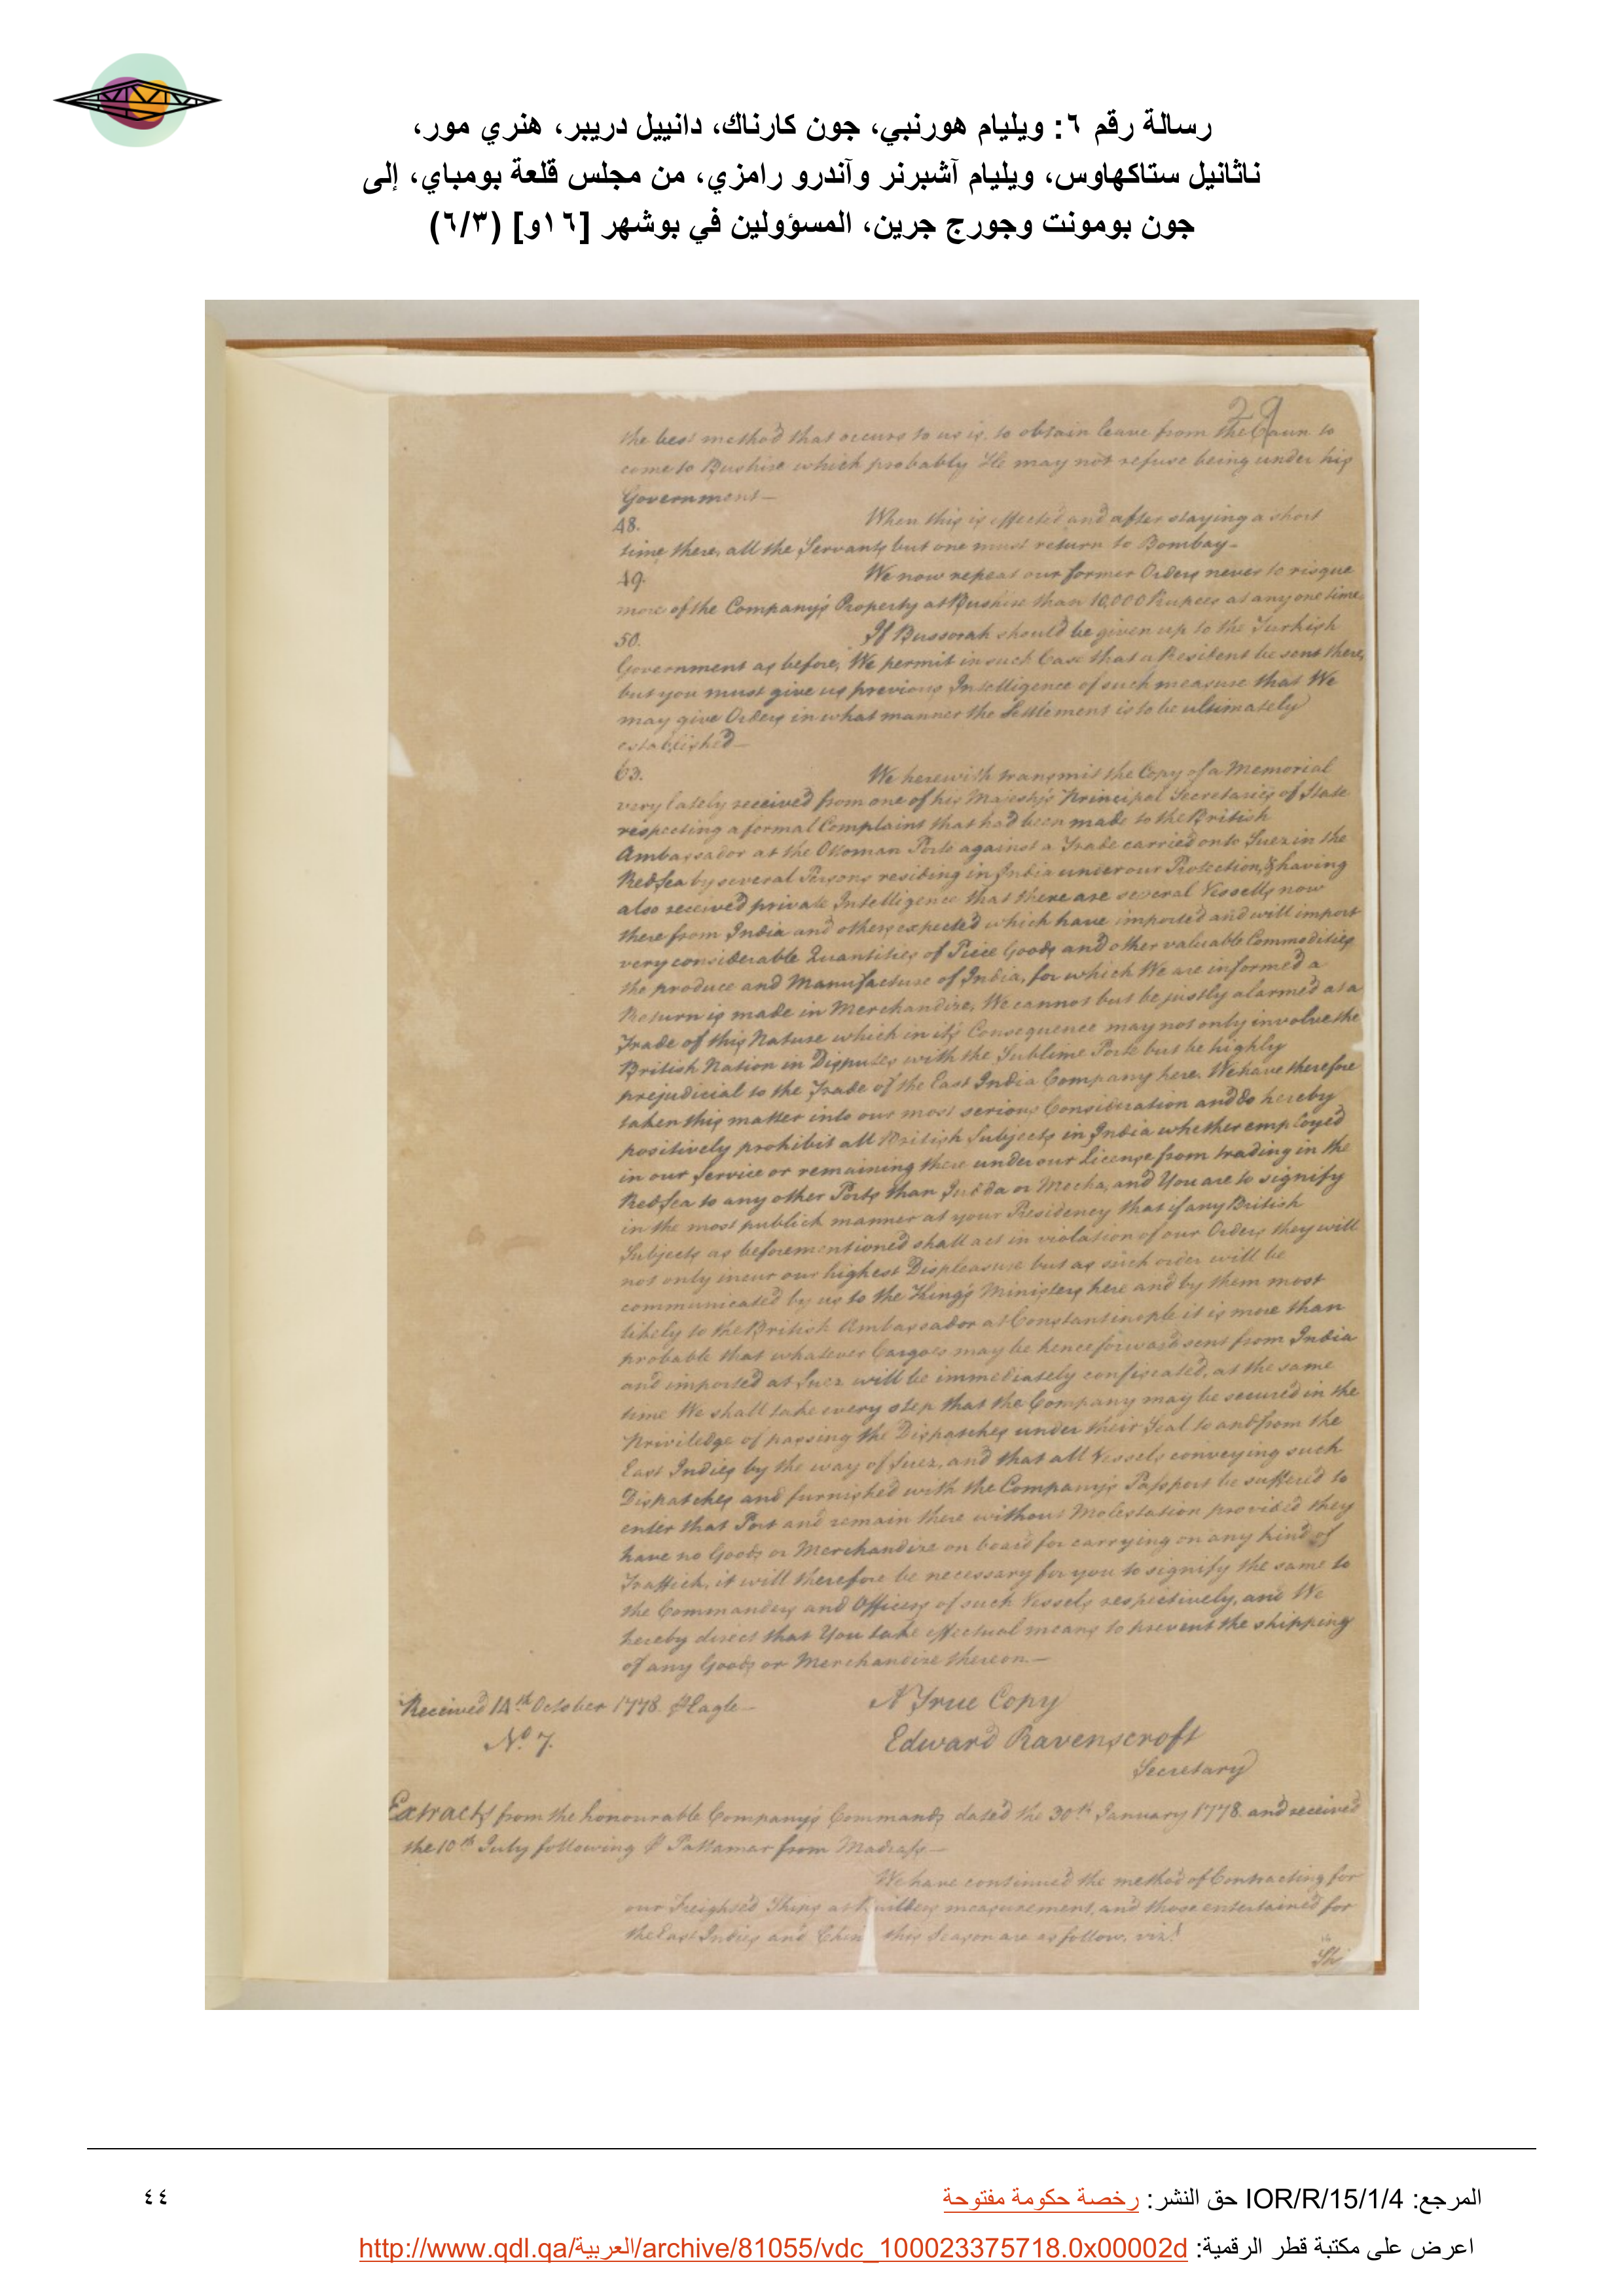 رسالة رقم ٦: ويليام هورنبي، جون كارناك، دانييل دريبر، هنري مور،
ناثانيل ستاكهاوس، ويليام آشبرنر وآندرو رامزي، من مجلس قلعة بومباي، إلى
جون بومونت وجورج جرين، المسؤولين في بوشهر [١٦و] (٦/٣)
29
the best method that occurs to us is, to obtain leave from the Caun to
come to Bushire which probably He may not refuse being under his
Government—
48. When this is effected and after staying a short
time there, all the Servants but one must return to Bombay—
49. We now repeat our former Orders never to risque
more of the Company's Property at Bushire than 10,000 Rupees at any one time
50. If Bussorah should be given up to the Turkish
Government as before, We permit in such Case that a Resident be sent there,
but you must give us previous Intelligence of such measure that We
may give Orders in what manner the Settlement is to be ultimately
established—
63. We herewith transmit the Copy of a Memorial
very lately received from one of his Majesty's Principal Secretaries of State
respecting a formal Complaint that had been made to the British
Ambassador at the Ottoman Porte against a Trade carried on to Suez in the
Red Sea by several Persons residing in India under our Protection, & having
also received private Intelligence that there are several Vessells now
there from India and others expected which have imported and will import
very considerable Quantities of Piece Goods and other valuable Commodities
the produce and Manufacture of India, for which We are informed a
Return is made in Merchandize, We cannot but be justly alarmed at a
Trade of this Nature which in it's Consequence may not only involve the
British Nation in Disputes with the Sublime Porte but be highly
prejudicial to the Trade of the East India Company here. We have therefore
taken this matter into our most serious Consideration and do hereby
positively prohibit all British Subjects in India whether employed
in our Service or remaining there under our License from trading in the
Red Sea to any other Ports than Judda or Mocha, and You are to signify
in the most publick manner at your Presidency that if any British
Subjects as beforementioned shall act in violation of our Orders they will
not only incur our highest Displeasure but as such order will be
communicated by us to the King's Ministers here and by them most
likely to the British Ambassador at Constantinople it is more than
probable that whatever Cargoes may be henceforward sent from India
and imported at Suez will be immediately confiscated, at the same
time We shall take every step that the Company may be secured in the
Priviledge of passing the Dispatches under their Seal to and from the
East Indies by the way of Suez, and that all Vessels conveying such
Dispatches and furnished with the Company's Passport be suffered to
enter that Port and remain there without Molestation provided they
have no Goods or Merchandize on board for carrying on any kind of
Traffick, it will therefore be necessary for you to signify the same to
the Commanders and Officers of such Vessels respectively, and We
hereby direct that You take effectual means to prevent the shipping
of any Goods or Merchandize thereon.—
Received 14th October 1778. P Eagle—
A True Copy
No. 7.
Edward Ravenscroft
Secretary
Extracts from the honourable Company's Commands dated the 30th January 1778. and received
the 10th July following P Pattamar from Madrass—
We have continued the method of Contracting for
our Freighted Ships at Builders measurement, and those entertained for
the East Indies and China this Season are as follow, vizt
المرجع: IOR/R/15/1/4 حق النشر: رخصة حكومة مفتوحة
٤٤
اعرض على مكتبة قطر الرقمية: http://www.qdl.qa/العربية/archive/81055/vdc_100023375718.0x00002d